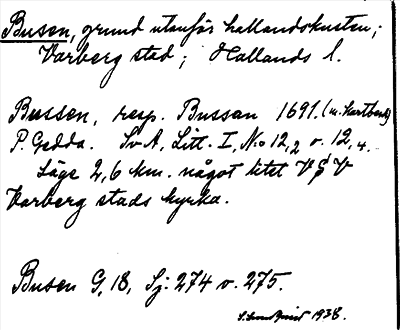 Busen, grund utanför hallandskusten;
Varberg stad; Hallands l.
Bussen, resp. Bussan 1691. (u. kartbok)
P. Gedda. Sv A, Litt. I, No 12,2 o. 12,4.
Läge 2,6 km. något litet V § V
Varberg stads kyrka.
Busen G, 18, Sj: 274 o. 275.
1938.